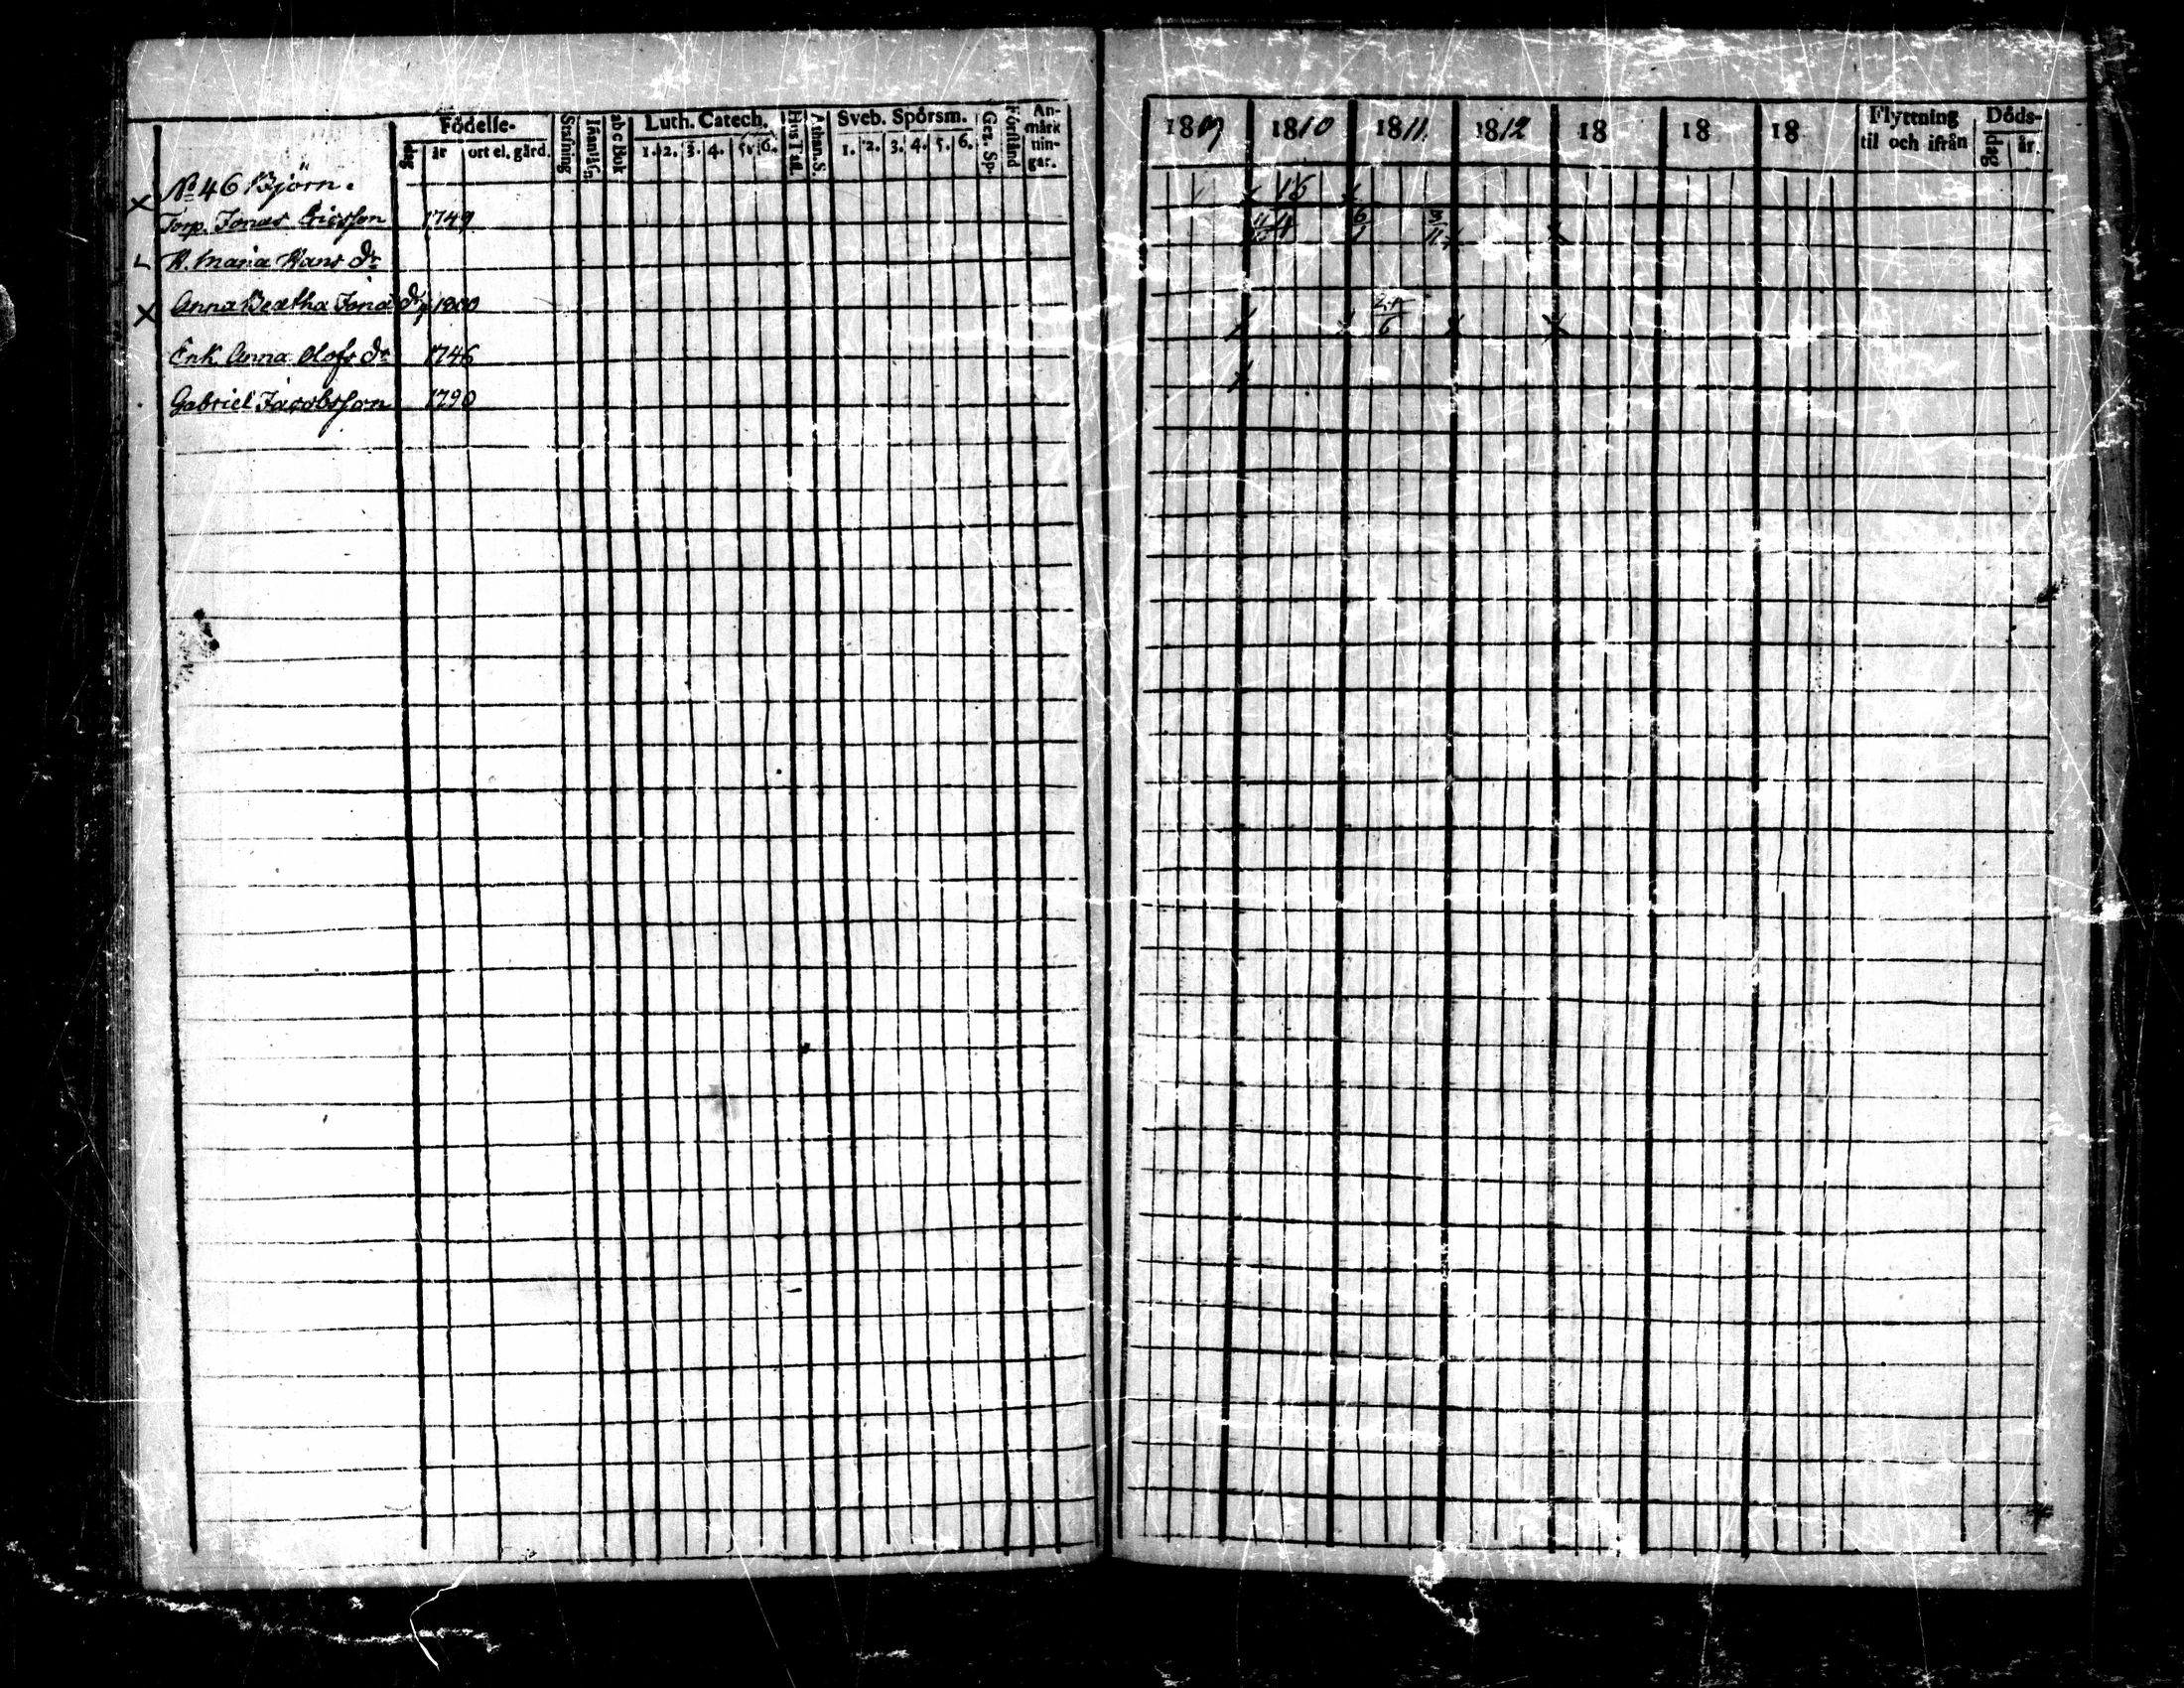 Födelse-
dag
år
ort el. gård.
Stafning
abc Bok
Luth. Catech.
1. 2. 3. 4. 5. 6.
Hus Taf.
Athan. S.
Sveb. Spörsm.
1. 2. 3. 4. 5. 6.
Gez. Sp.
Förstånd
An-
märk
nin-
gar.
No 46 Björn.
Torp. Jonas Ericsson 1749
H. Maria Hans dr
Anna Beatha Jona dr 1800
Enk. Anna Olofs dr 1746
Gabriel Jacobsson 1790
1809 1810 1811. 1812 18 18 18
Flyttning
til och ifrån
Döds-
dag
år.
16